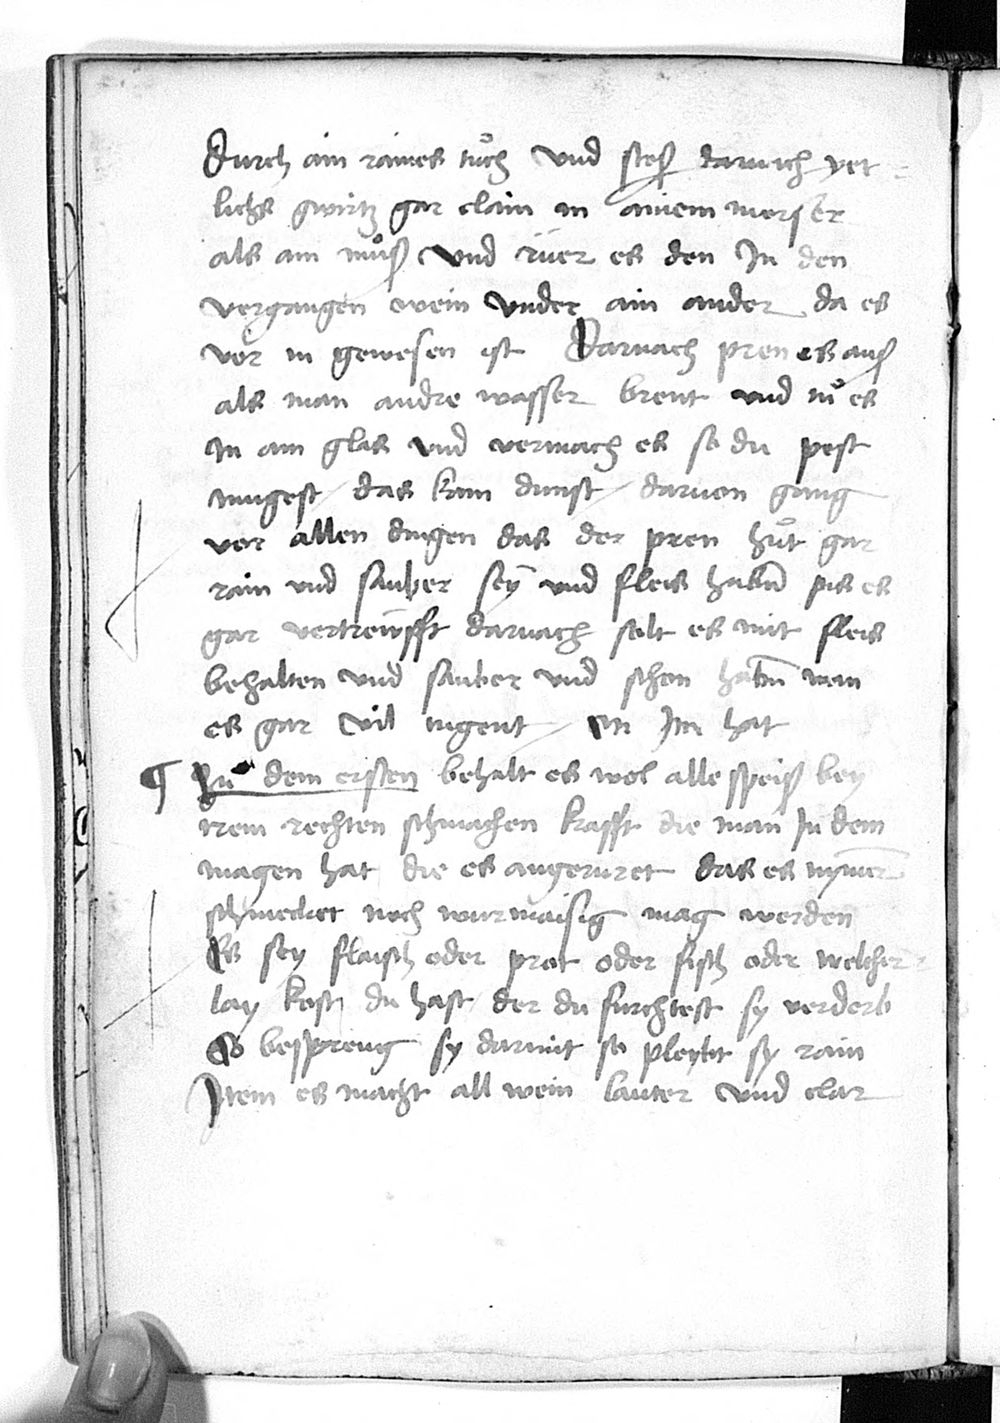 durch ain raines tuͦch vnd stos darnach yet-
lichs gwirtz gar clain in ainem morser
als ain muͦß vnd rüer es den In den
vergangen wein vnder ain ander da es
vor in gewesen ist Darnach pren es auß
als man andre wasser brent vnd tuͦ es
In ain glas vnd vermach es so du pest
mugest / das kain dunst / daruon gang
vor allen dingen das der pren huͦt gar
rain vnd sauber sey vnd fleis habñ pis es
gar vertreifft darnach solt es mit fleis
behalten vnd sauber vnd schon habñ wan
es gar vil tugent / An Im hat
¶ Zu dem ersten behalt es wol alle speiß bey
irem rechten schmachen krafft die man In dem
magen hat die es angerüret das es nymer
schmecket noch wurmaisig mag werden
Es sey flaisch oder prot oder fisch oder welcher-
lay kost du hast der du furchtest sy verderb
So bespreng sy darmit so pleybt sy rain
Item es macht all wein lauter vnd clar